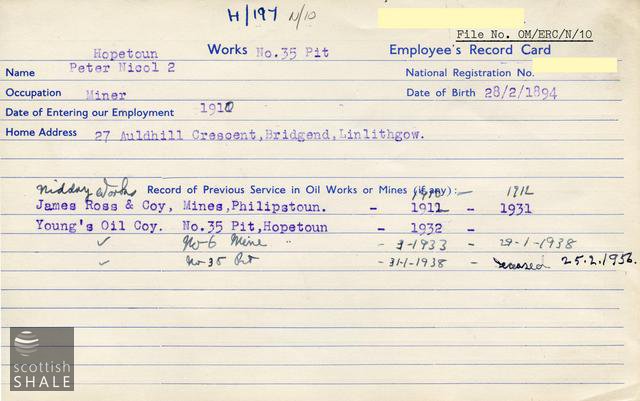 H/197 N/10
File No. OM/ERC/N/10
Hopetoun Works No.35 Pit Employee's Record Card
Name Peter Nicol 2 National Registration No.
Occupation Miner Date of Birth 28/2/1894
Date of Entering our Employment 1910
Home Address 27 Auldhill Crescent,Bridgend,Linlithgow.
Niddry Works Record of Previous Service in Oil Works or Mines (if any):- 1910 - 1912
James Ross & Coy, Mines,Philipstoun. - 1912 - 1931
Young's Oil Coy. No.35 Pit,Hopetoun - 1932 -
✓ No 6 Mine " - 3-1933 - 29-1-1938
✓ No 35 Pit - 31-1-1938 - deceased 25.2.1956.
scottish
SHALE